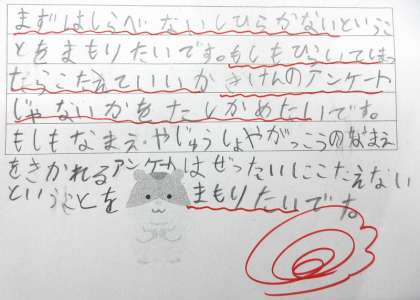 まずはしらべないしひらかないというこ
とをまもりたいです。もしもひらいてしまっ
たらこたえていいかきけんのアンケート
じゃないかをたしかめたいです。
もしもなまえ・やじゅうしょやがっこうのなまえ
をきかれるアンケートはぜったいにこたえない
ということをまもりたいです。